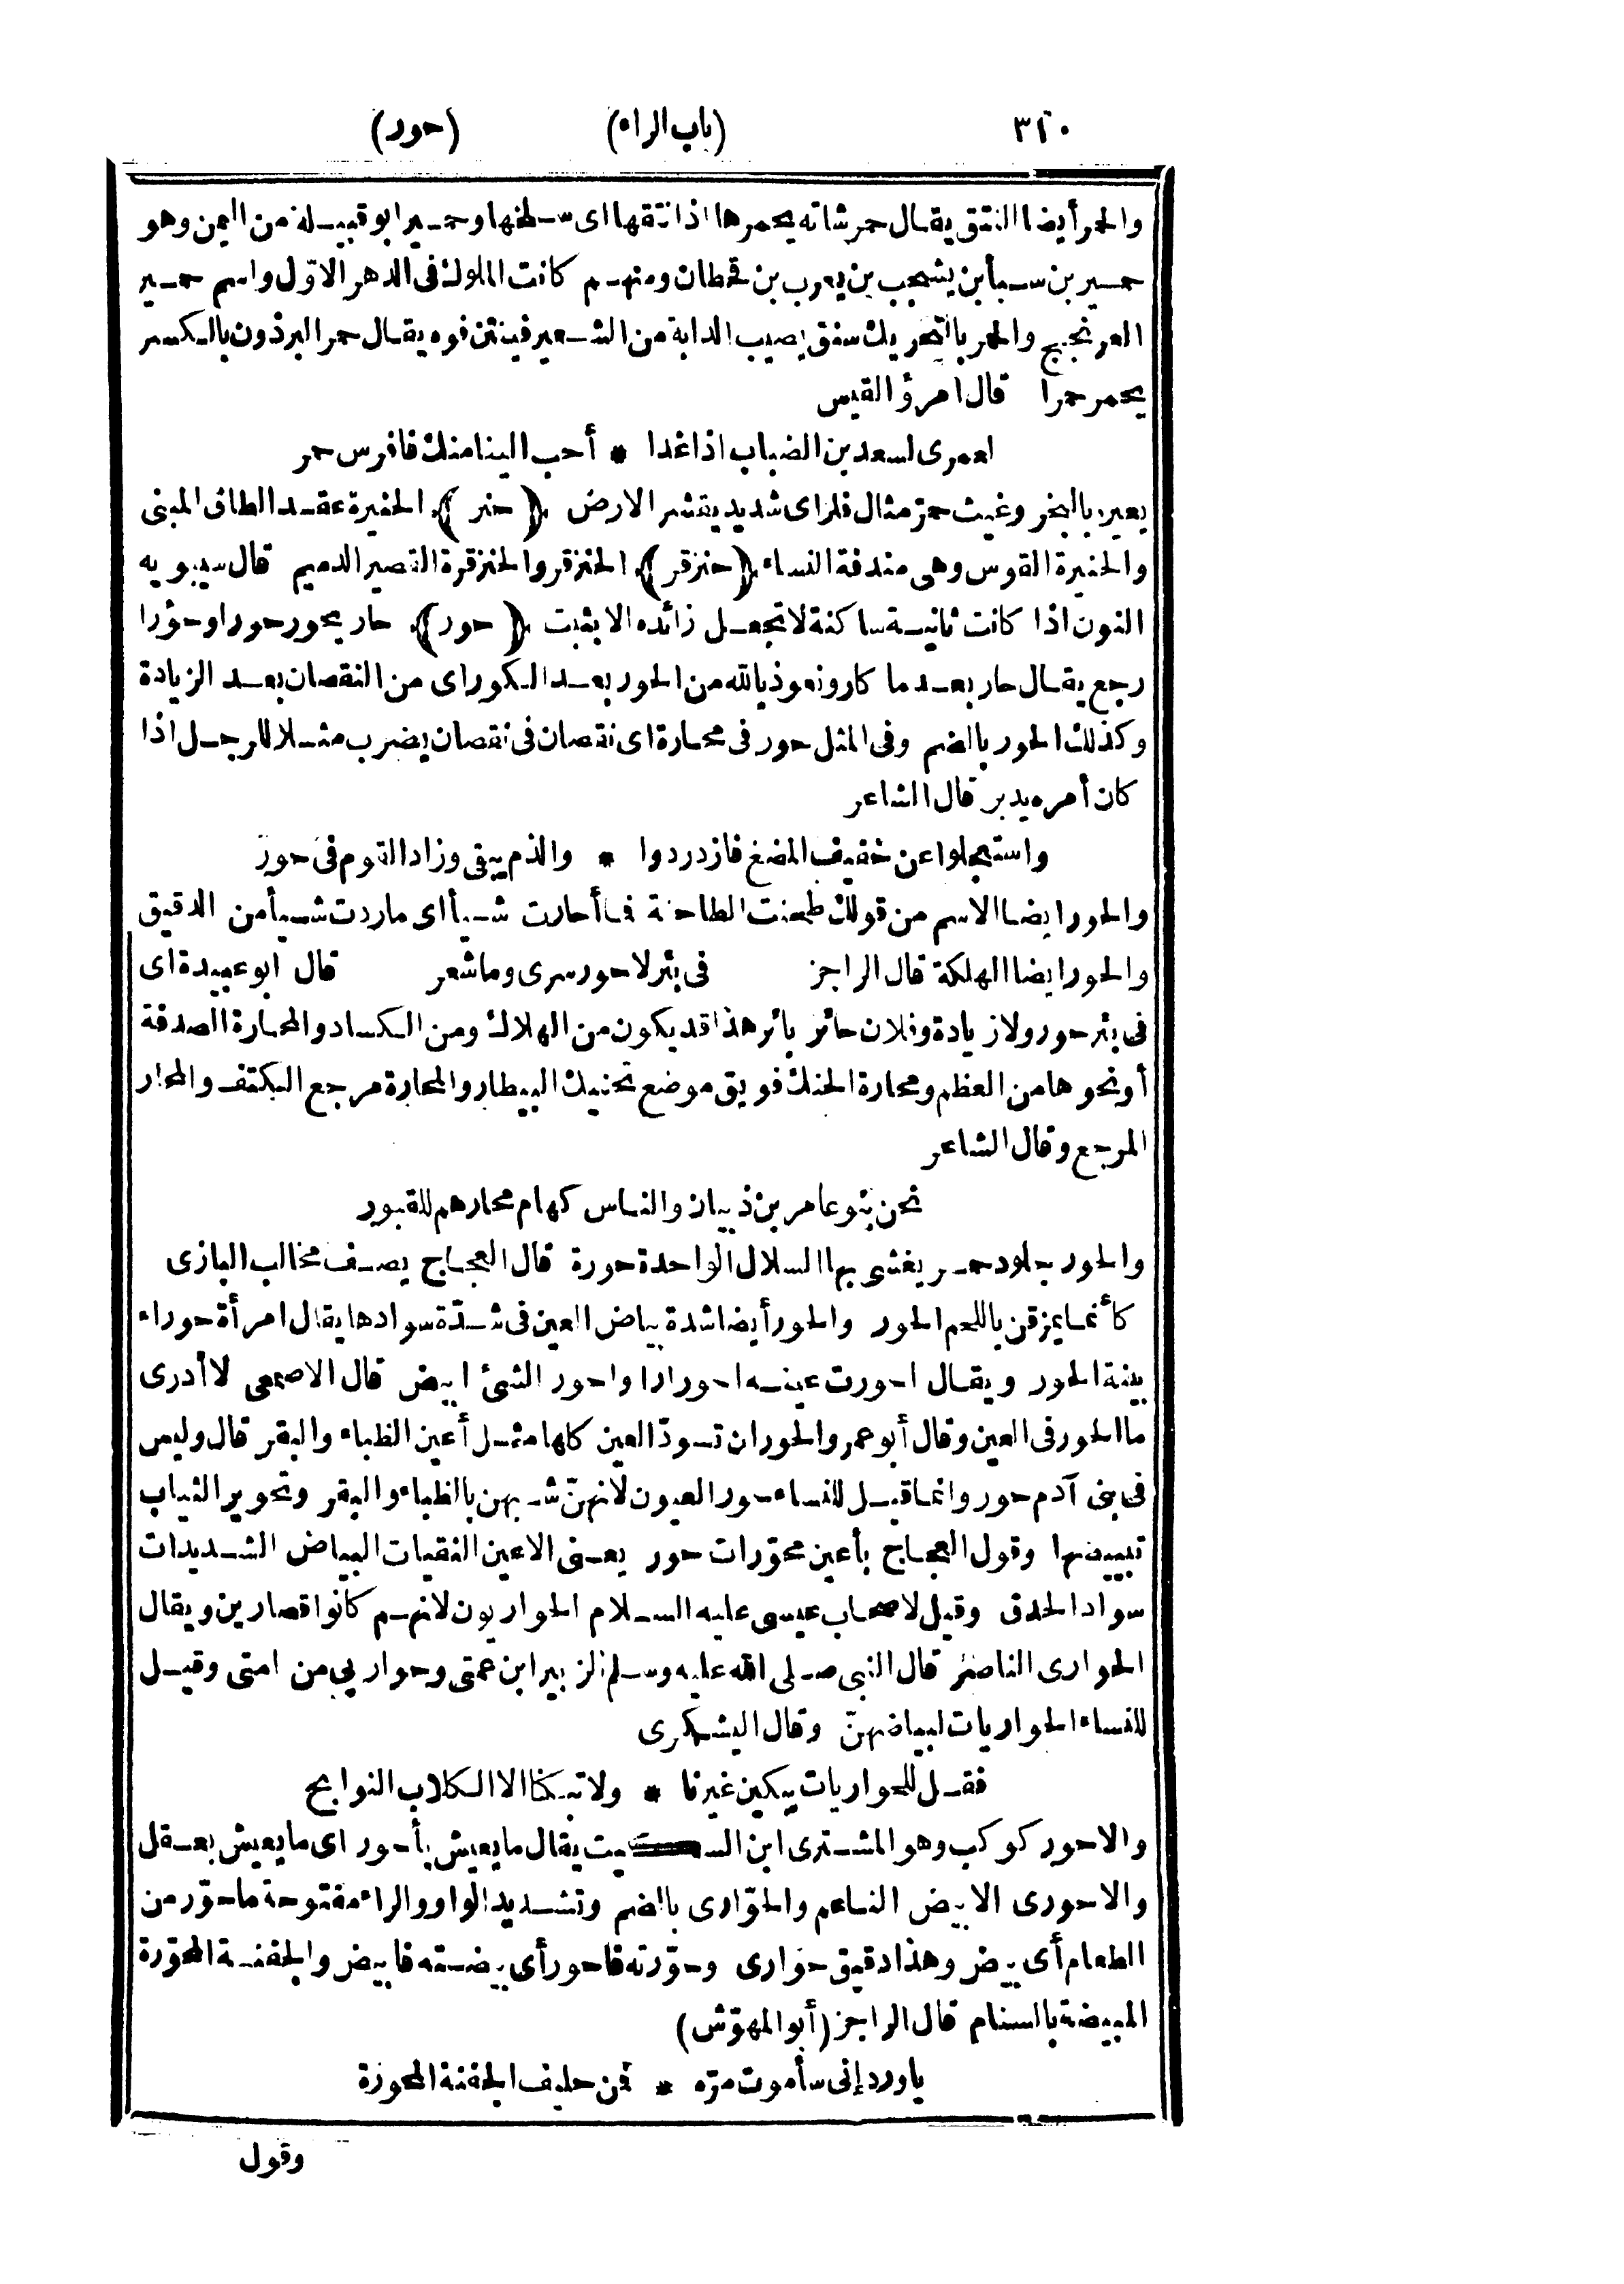 ٣١٠ (باب الراء) (حور)
والحمر أيضا النتق يقال حمر شاته يحمرها اذا نتقها اى سلخها وحمير ابو قبيلة من اليمن وهو
حمير بن سبأ بن يشجب بن يعرب بن قحطان ومنهم كانت الملوك فى الدهر الاوّل واسم حمير
العرنجج والحمر بالتحريك سنق يصيب الدابة من الشعير فينتن فوه يقال حمر البرذون بالكسر
يحمر حمرا قال امرؤ القيس
لعمرى لسعد بن الضباب اذا غدا * أحب الينا منك فافرس حمر
يعيره بالبخر وغيث حمرّ مثال فلز اى شديد يقشر الارض ﴿ حنر ﴾ الحنيرة عقد الطاق المبنى
والحنيرة القوس وهى مندفة النساء ﴿ حنزقر ﴾ الحنزقر والحنزقرة القصير الدميم قال سيبويه
النون اذا كانت ثانية ساكنة لا تجعل زائده الا بثبت ﴿ حور ﴾ حار يحور حورا وحؤرا
رجع يقال حار بعد ما كار ونعوذ بالله من الحور بعد الكور اى من النقصان بعد الزيادة
وكذلك الحور بالضم وفى المثل حور فى محارة اى نقصان فى نقصان يضرب مثلا للرجل اذا
كان أمره يدبر قال الشاعر
واستعجلوا عن خفيف المضغ فازدردوا * والذم يبقى وزاد القوم فى حور
والحور ايضا الاسم من قولك طحنت الطاحنة فما أحارت شيأ اى ماردت شيأ من الدقيق
والحور ايضا الهلكة قال الراجز فى بئر لا حور سرى وما شعر قال ابو عبيدة اى
فى بئر حور ولا زيادة وفلان حائر بائر هذا قد يكون من الهلاك ومن الكساد والمحارة الصدفة
أو نحوها من العظم ومحارة الحنك فويق موضع تحنيك البيطار والمحارة مرجع الكتف والمحار
المرجع وقال الشاعر
نحن بنو عامر بن ذبيان والناس كهام محارهم للقبور
والحور جلود حمر يغشى بها السلال الواحدة حورة قال العجاج يصف مخالب البازى
كأنما يمزقن باللحم الحور والحور أيضا شدة بياض العين فى شدّة سوادها يقال امرأة حوراء
بينة الحور ويقال احورت عينه احورارا واحور الشئ ابيض قال الاصمعى لا أدرى
ما الحور فى العين وقال أبو عمرو الحور ان تسودّ العين كلها مثل أعين الظباء والبقر قال وليس
فى بنى آدم حور وانما قيل للنساء حور العيون لانهنّ شبهن بالظباء والبقر وتحوير الثياب
تبييضها وقول العجاج بأعين محوّرات حور يعنى الاعين النقيات البياض الشديدات
سواد الحدق وقيل لاصحاب عيسى عليه السلام الحواريون لانهم كانوا قصارين ويقال
الحوارى الناصر قال النبى صلى الله عليه وسلم الزبير ابن عمتى وحواريى من امتى وقيل
للنساء الحواريات لبياضهنّ وقال اليشكرى
فقل للحواريات يبكين غيرنا * ولا تبكنا الا الكلاب النوابح
والاحور كوكب وهو المشترى ابن السكيت يقال ما يعيش بأحور اى ما يعيش بعقل
والاحورى الابيض الناعم والحوّارى بالضم وتشديد الواو والراء مفتوحة ما حوّر من
الطعام أى بيض وهذا دقيق حوّارى وحوّرته فاحور أى بيضته فابيض والجفنة المحوّرة
المبيضة بالسنام قال الراجز (أبو المهوّش)
ياورد إنى سأموت مرّه * فمن حليف الجفنة المحورّة
وقول